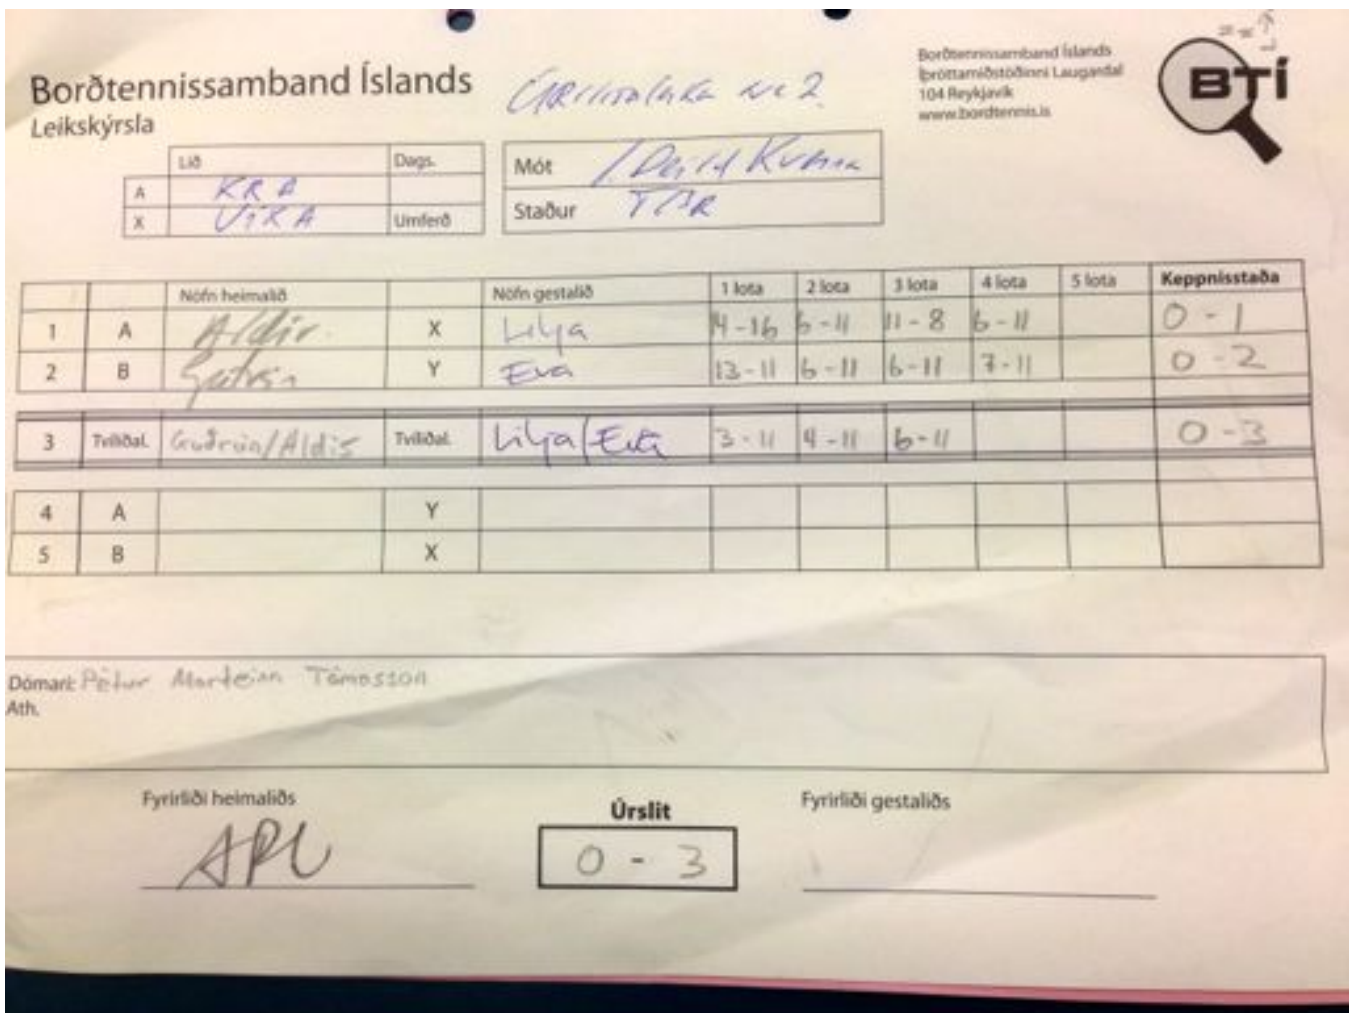 Borðtennissamband Íslands
Leikskýrsla
nr 2
Borðtennissamband Íslands
Íþróttamiðstöðinni Laugardal
104 Reykjavík
www.bordtennis.is
BTÍ
Lið Dags.
A KR A
X VÍK A Umferð
Mót 1 Deild Kvenna
Staður TBR
Nöfn heimalið Nöfn gestalið 1 lota 2 lota 3 lota 4 lota 5 lota Keppnisstaða
1 A Aldís X Lilja 14-16 6-11 11-8 6-11 0-1
2 B Guðrún Y Eva 13-11 6-11 6-11 7-11 0-2
3 Tvíliðal. Guðrún/Aldís Tvíliðal. Lilja/Eva 3-11 4-11 6-11 0-3
4 A Y
5 B X
Dómari: Pétur Marteinn Tómasson
Ath.
Fyrirliði heimaliðs Úrslit Fyrirliði gestaliðs
0 - 3